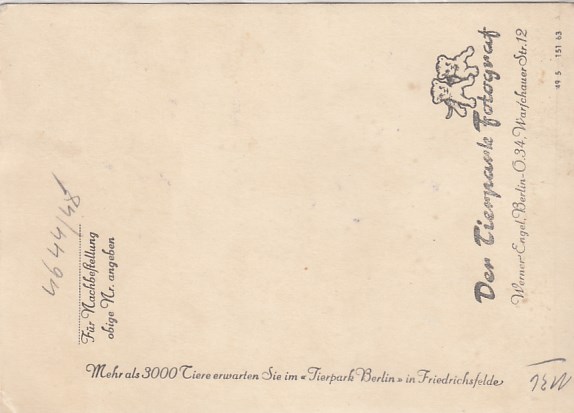 Der Tierpark Fotograf
Werner Engel, Berlin-O.34, Warschauer Str. 12
49 5 151 63
4644/48
Für Nachbestellung
obige Nr. angeben
Mehr als 3000 Tiere erwarten Sie im «Tierpark Berlin» in Friedrichsfelde